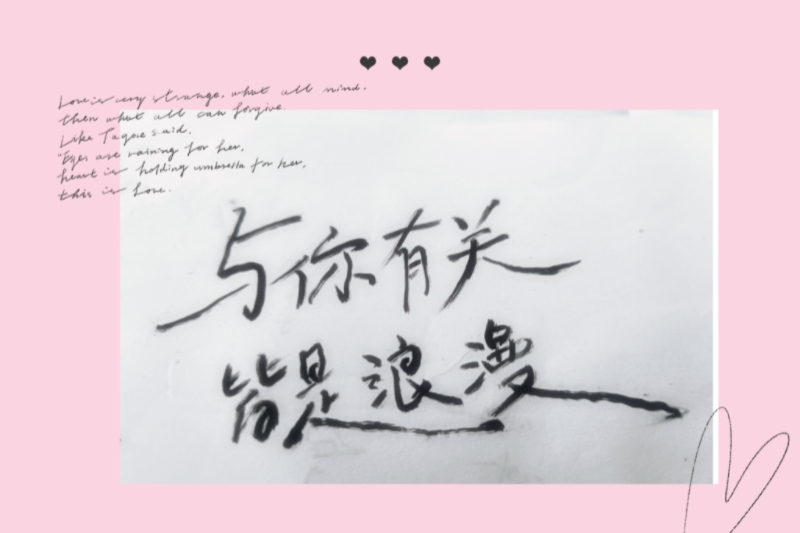 Love is very strange. what all mind.
then what all can forgive
Like Tagore said.
"Eyes are raining for her,
heart is holding umbrella for her,
this is love.
与你有关
皆是浪漫